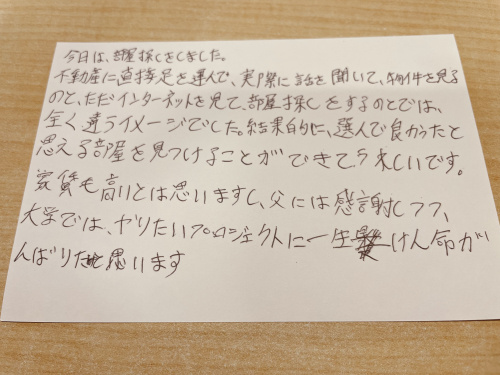 今日は、部屋探しをしました。
不動産に直接足を運んで、実際に話を聞いて、物件を見る
のと、ただインターネットを見て、部屋探しをするのとでは、
全く違うイメージでした。結果的に、選んで良かったと
思える部屋を見つけることができてうれしいです。
家賃も高いとは思いますし、父には感謝しつつ、
大学では、やりたいプロジェクトに一生けん命が
んばりたいと思います